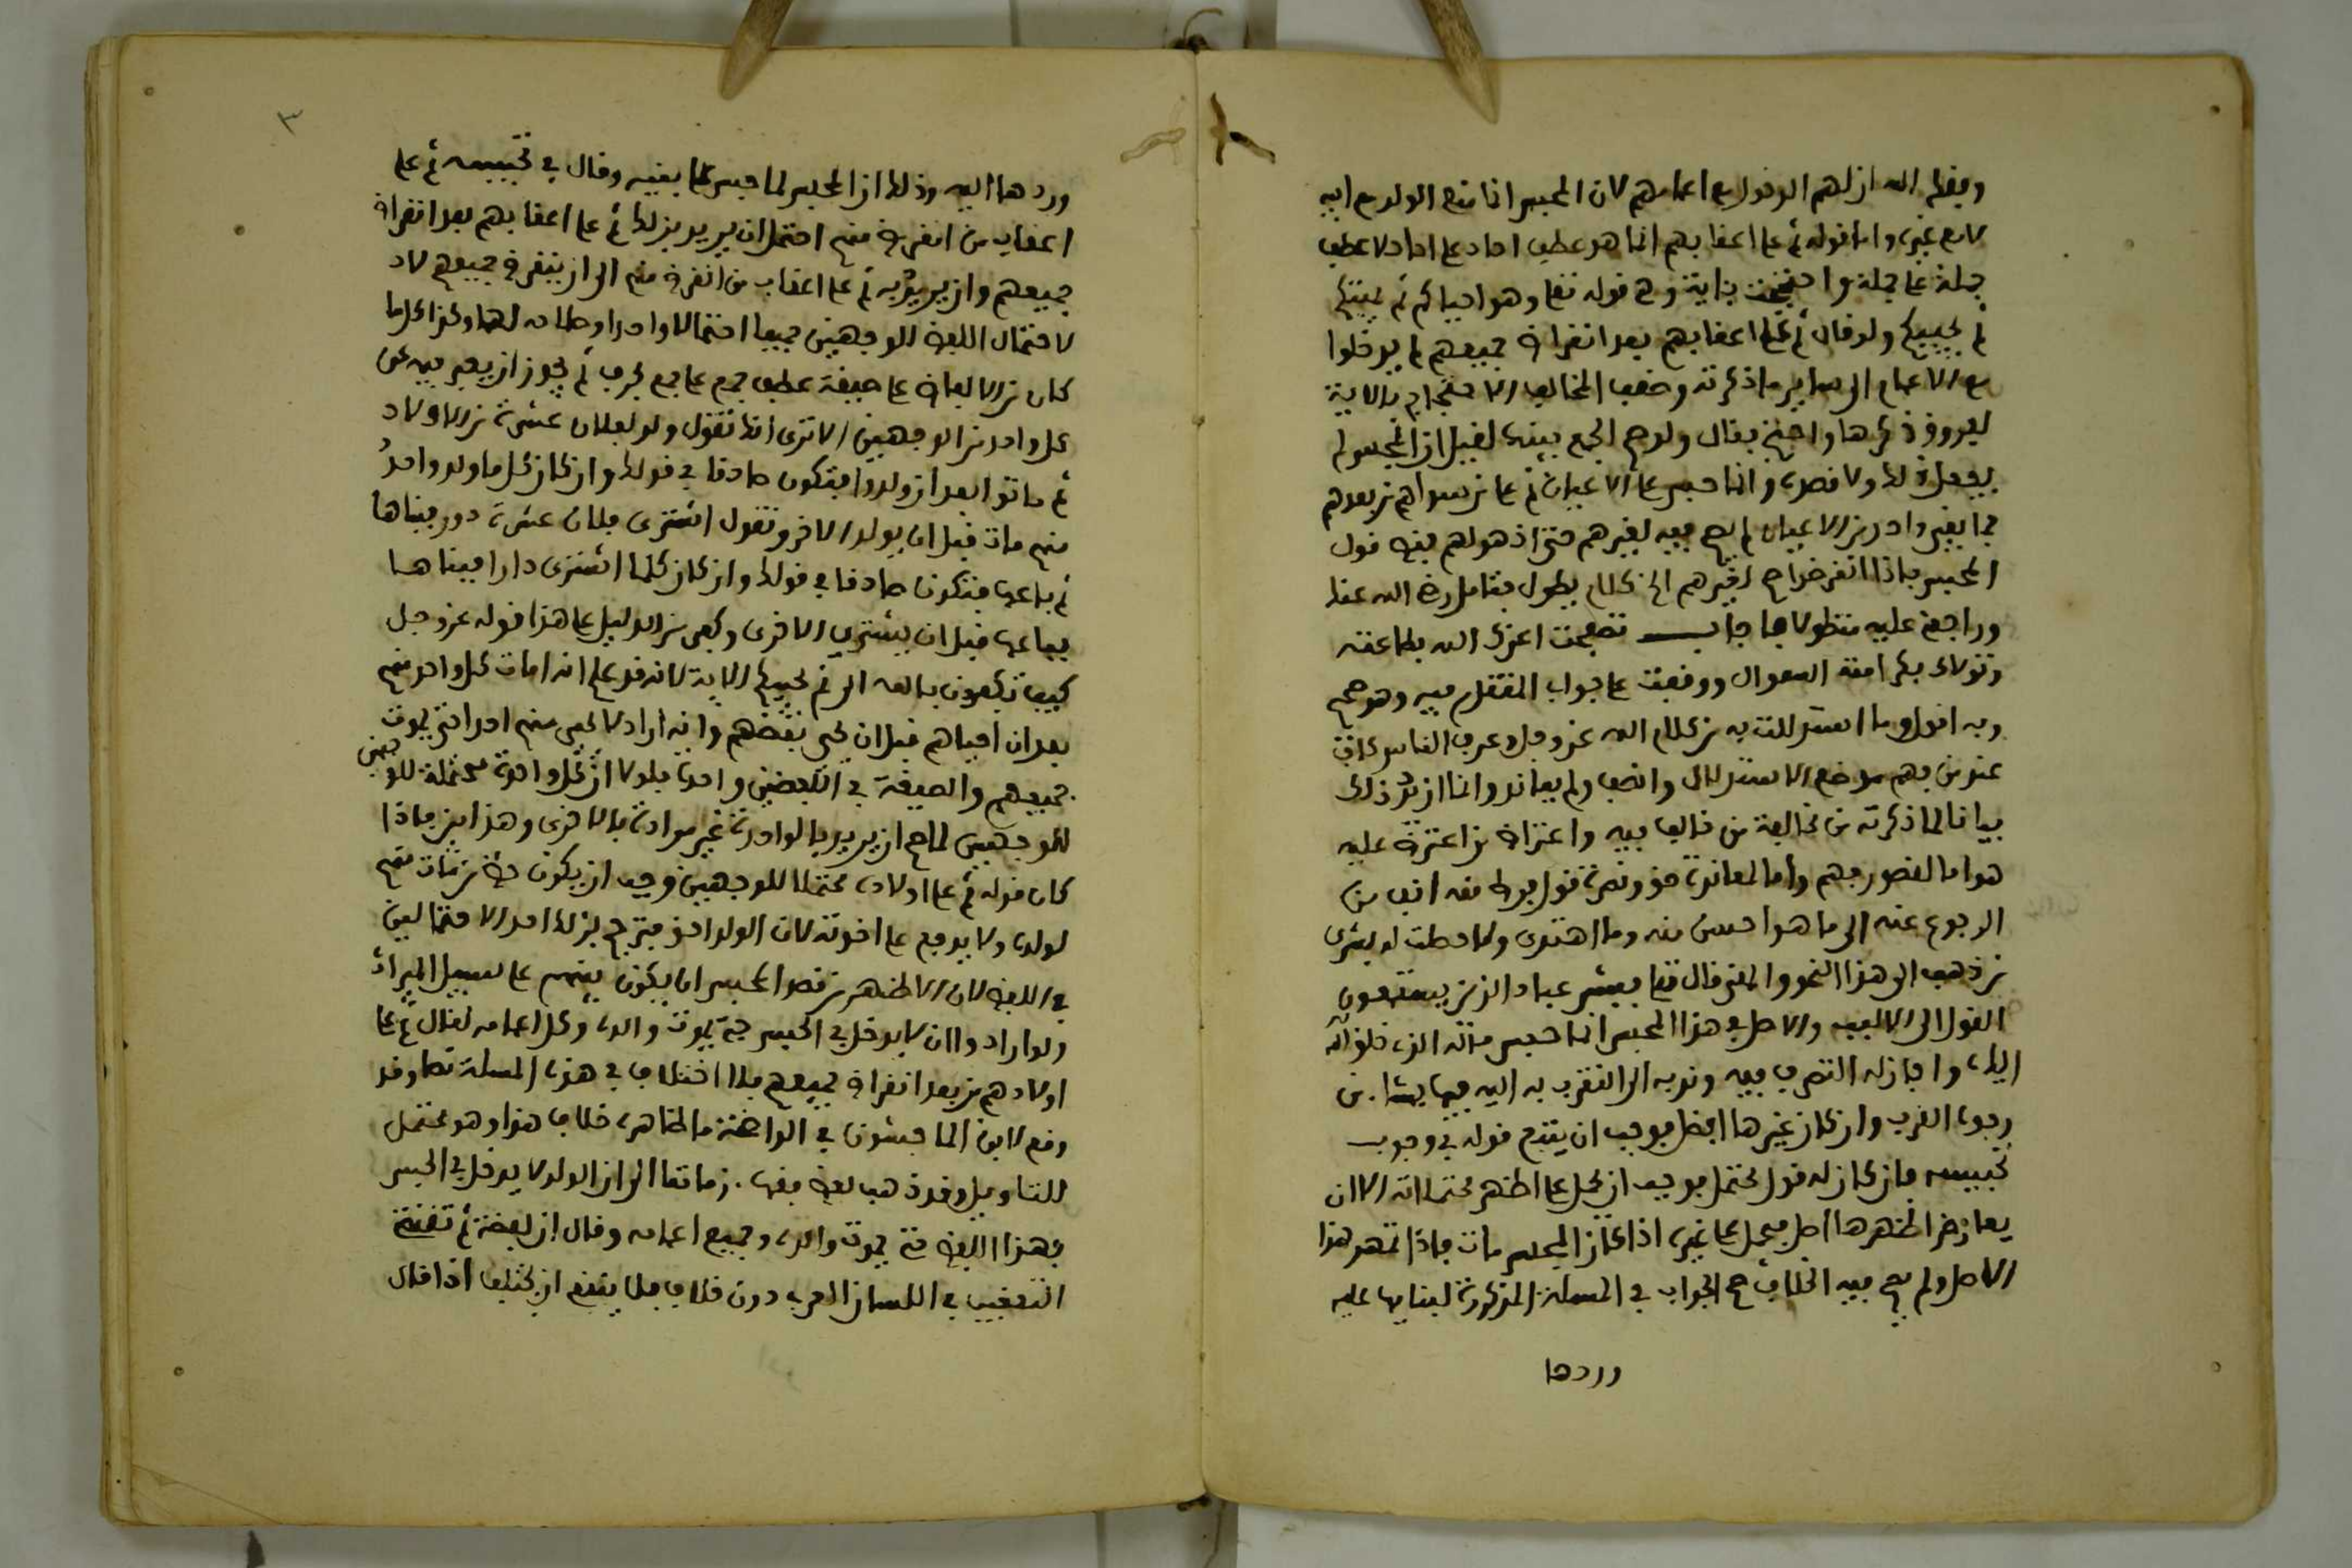 وفقك الله ان لهم الدخول مع اعمامهم لان المحبس انما منع الولد مع ابيه
لا مع غيره واما قوله ثم على اعقابهم انما هو عطف احاد على احاد لا عطف
جملة على جملة واحتججت بآية وهي قوله تعلى وهو احياكم ثم يميتكم
ثم يحييكم ولو قال ثم على اعقابهم بعد انقراض جميعهم لم يدخلوا
مع الاعمام الى سائر ما ذكرته وضعف المخالف الاحتجاج بالاية
ذكرها واحتج بقال ولو صح الجمع بينهما لقيل ان المحبس لم
يفعل ذلك ولا قصده وانما حبس على الاعيان ثم على من سواهم من بعدهم
فما بقي واحد من الاعيان لم يصح فيه لغيرهم حتى اذهولهم فيه قول
المحبس فاذا انقرضوا رجع لغيرهم الى كلام يطول فتامله رضي الله عنك
وراجع عليه متطولا فاجاب تصفحت اعزك الله بطاعته
وتولاك بكرامته السوال ووقفت على جواب المتقدم فيه وهو صحيح
وبه اقول وما استدللت به من كلام الله عز وجل وعرف الناس كاف
عند من يفهم موضع الاستدلال وانصف ولم يعاند وانا ازيد ذلك
بيانا لما ذكرته من مخالفة من خالف فيه واعتراض من اعترض عليه
هو اما لقصور فهم واما لمعاندة حق ونصرة قول فرط منه انف من
الرجوع عنه الى ما هو احسن منه وما اهتدى ولا حصلت له بشرى
من ذهب الى هذا النحو والمعنى قال تعلى فبشر عبادي الذين يستمعون
القول الى الالباب والاصل في هذا المحبس انما حبس ماله الذي خوله الله
اياه واجاز له التصرف فيه وندبه الى التقرب به اليه فيما يشاء من
وجوه القرب وان كان غيرها افضل فوجب ان يتبع قوله في وجوب
تحبيسه فان كان له قول محتمل فوجب ان يحمل على اظهر محتملاته الا ان
يعارض اظهرها اصل فيحمل على غيره اذا كان المحبس مات فاذا تمهد هذا
الاصل ولم يصح فيه الخلاف صح الجواب في المسلة المذكورة لبنائها عليه
وردها
٣
وردها اليه وذلك ان المحبس لما حبس على بنيه وقال في تحبيسه ثم على
اعقاب من انقرض منهم احتمل ان يريد بذلك ثم على اعقابهم بعد انقراض
جميعهم وان يريد به ثم على اعقاب من انقرض منهم الى ان ينقرض جميعهم لاد
لاحتمال اللفظ للوجهين جميعا احتمالا واحدا وصلاحه لهما وكذا كل ما
كان من الالفاظ على صيغة عطف جمع على جمع بحرف ثم يجوز ان يعبر فيه عن
كل واحد من الوجهين الا ترى انك تقول ولد لفلان عشرة من الاولاد
ثم ماتوا بعد ان ولدوا فتكون صادقا في قولك وان كان كل ما ولد واحد
منهم مات قبل ان يولد الاخر وتقول اشترى فلان عشرة دور فبناها
ثم باعها فتكون صادقا في قولك وان كان كلما اشترى دارا فبناها
باعها قبل ان يشتري الاخرى وكفى من الدليل على هذا قوله عز وجل
كيف تكفرون بالله الى ثم يحييكم الاية لانه قد علم انه امات كل واحد منهم
بعد ان احياهم قبل ان يحيي بعضهم وانه اراد لا يحيي منهم احدا حتى يموت
جميعهم والصيغة في اللفظين واحدة فلولا ان كل واحدة محتملة للوجهين
للوجهين لما صح ان يريد بالواحدة غير مراده بالاخرى وهذا بين فاذا
كان قوله ثم على اولاده محتملا للوجهين وجب ان يكون حظ من مات منهم
لولده ولا يرجع على اخوته لان الولد احق فترجح بذلك احد الاحتمالين
في اللفظ لان الاظهر من قصد المحبس ان يكون بينهم على سبيل الميراث
ولو ارادوا ان لا يدخل في الحبس حتى يموت والده وكل اعمامه لقال ثم على
اولادهم من بعد انقراض جميعهم فلا اختلاف في هذه المسلة نصا وقد
وقع لابن الماجشون في الواضحة ما ظاهره خلاف هذا وهو محتمل
للتاويل وقد ذهب بعض فقهاء زماننا الى ان الولد لا يدخل في الحبس
بهذا اللفظ حتى يموت والده وجميع اعمامه وقال ان لفظة ثم تقتضي
التعقيب في اللسان العربي دون خلاف فلا ينبغي ان يختلف اذا قال